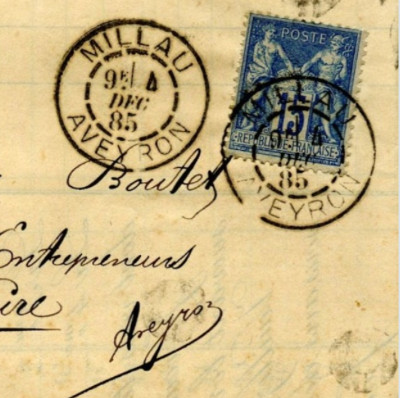 MILLAU
9E 4
DEC
85
AVEYRON
POSTE
15
REPUBLIQUE FRANÇAISE
MILLAU
9E 4
DEC
85
AVEYRON
Boutet
Entrepreneurs
Aveyron